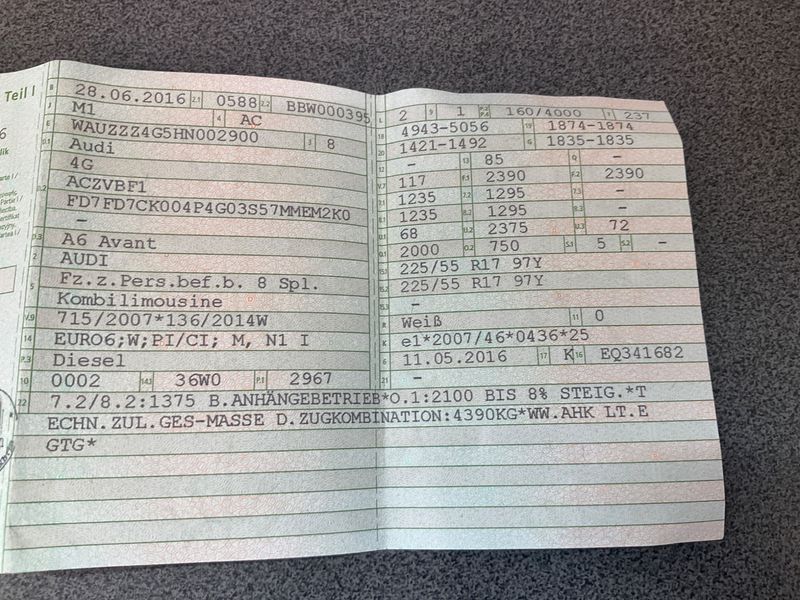 Teil I
B 28.06.2016 2.1 0588 2.2 BBW000395
J M1 4 AC
E WAUZZZ4G5HN002900 3 8
D.1 Audi
4G
D.2 ACZVBF1
FD7FD7CK004P4G03S57MMEM2K0
–
D.3 A6 Avant
2 AUDI
5 Fz.z.Pers.bef.b. 8 Spl.
Kombilimousine
V.9 715/2007*136/2014W
14 EURO6;W;PI/CI; M, N1 I
P.3 Diesel
10 0002 14.1 36W0 P.1 2967
22 7.2/8.2:1375 B.ANHÄNGEBETRIEB*O.1:2100 BIS 8% STEIG.*T
ECHN.ZUL.GES-MASSE D.ZUGKOMBINATION:4390KG*WW.AHK LT.E
GTG*
L 2 9 1 P.2 P.4 160/4000 T 237
18 4943-5056 19 1874-1874
20 1421-1492 G 1835-1835
12 – 13 85 Q –
V.7 117 F.1 2390 F.2 2390
7.1 1235 7.2 1295 7.3 –
8.1 1235 8.2 1295 8.3 –
U.1 68 U.2 2375 U.3 72
O.1 2000 O.2 750 S.1 5 S.2 –
15.1 225/55 R17 97Y
15.2 225/55 R17 97Y
15.3 –
R Weiß 11 0
K e1*2007/46*0436*25
6 11.05.2016 17 K 16 EQ341682
21 –